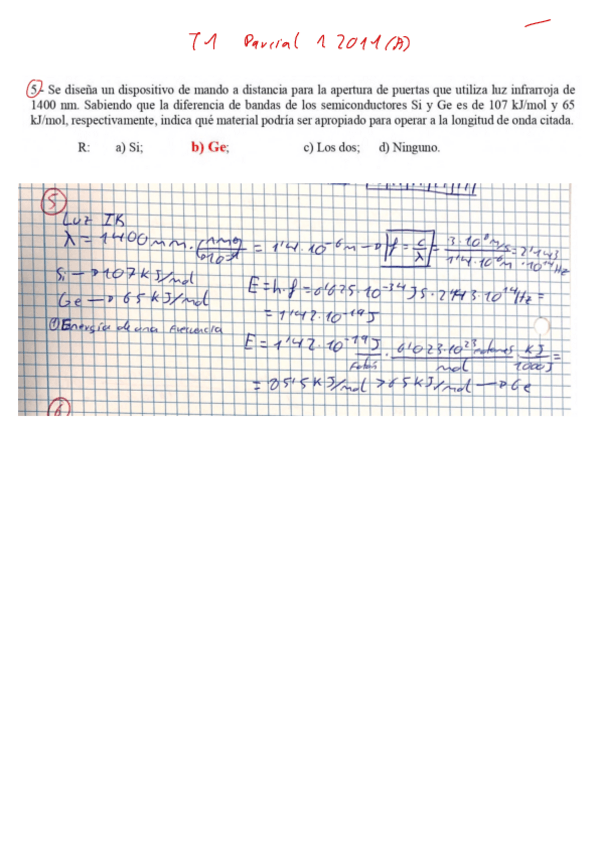 T1 Parcial 1 2011 (A)
5.- Se diseña un dispositivo de mando a distancia para la apertura de puertas que utiliza luz infrarroja de
1400 nm. Sabiendo que la diferencia de bandas de los semiconductores Si y Ge es de 107 kJ/mol y 65
kJ/mol, respectivamente, indica qué material podría ser apropiado para operar a la longitud de onda citada.
R: a) Si; b) Ge; c) Los dos; d) Ninguno.
5
Luz IR
λ = 1400 nm · = 1'4·10⁻⁶m → f = c/λ = 3·10⁸ m/s / 1'4·10⁻⁶m = 2'143·10¹⁴Hz
Si → 107 kJ/mol
Ge → 65 KJ/mol
E = h·f = 6'625·10⁻³⁴ JS · 2'143·10¹⁴Hz =
= 1'42·10⁻¹⁹J
① Energía de una frecuencia
E = 1'42·10⁻¹⁹J / fotón · 6'023·10²³ / mol · KJ / 1000J =
= 85'5 KJ/mol > 65 KJ/mol → Ge
6